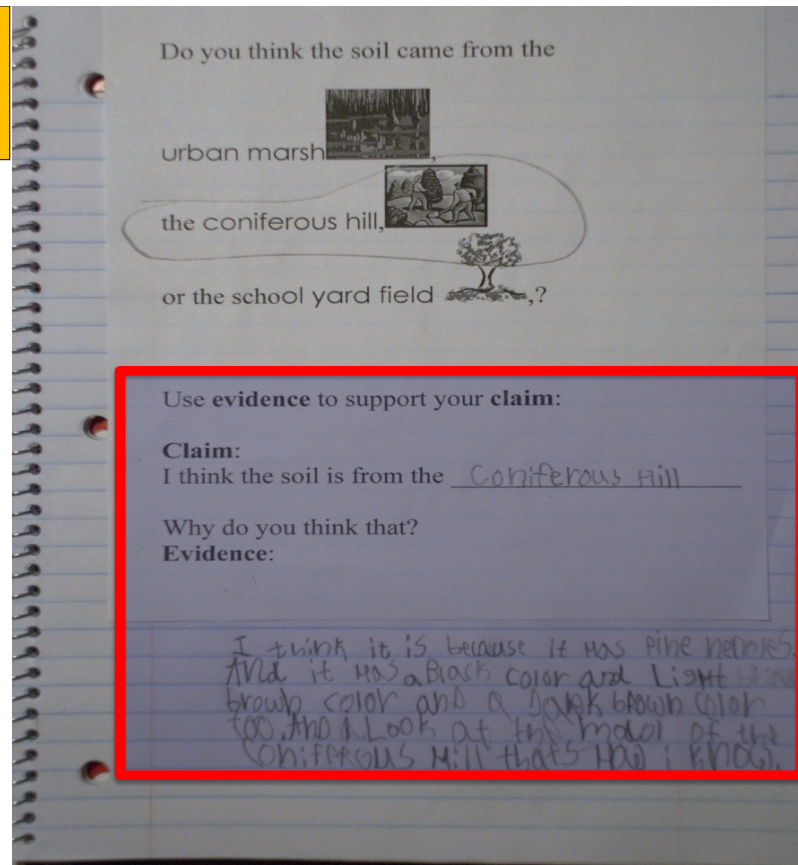 Do you think the soil came from the
urban marsh,
the coniferous hill,
or the school yard field ,?
Use evidence to support your claim:
Claim:
I think the soil is from the Coniferous Hill
Why do you think that?
Evidence:
I think it is because it Has Pine nednles.
And it Has a Black color and Light
brown color and a Dark brown color
too. And I Look at the model of the
Coniferous Hill thats How i know.